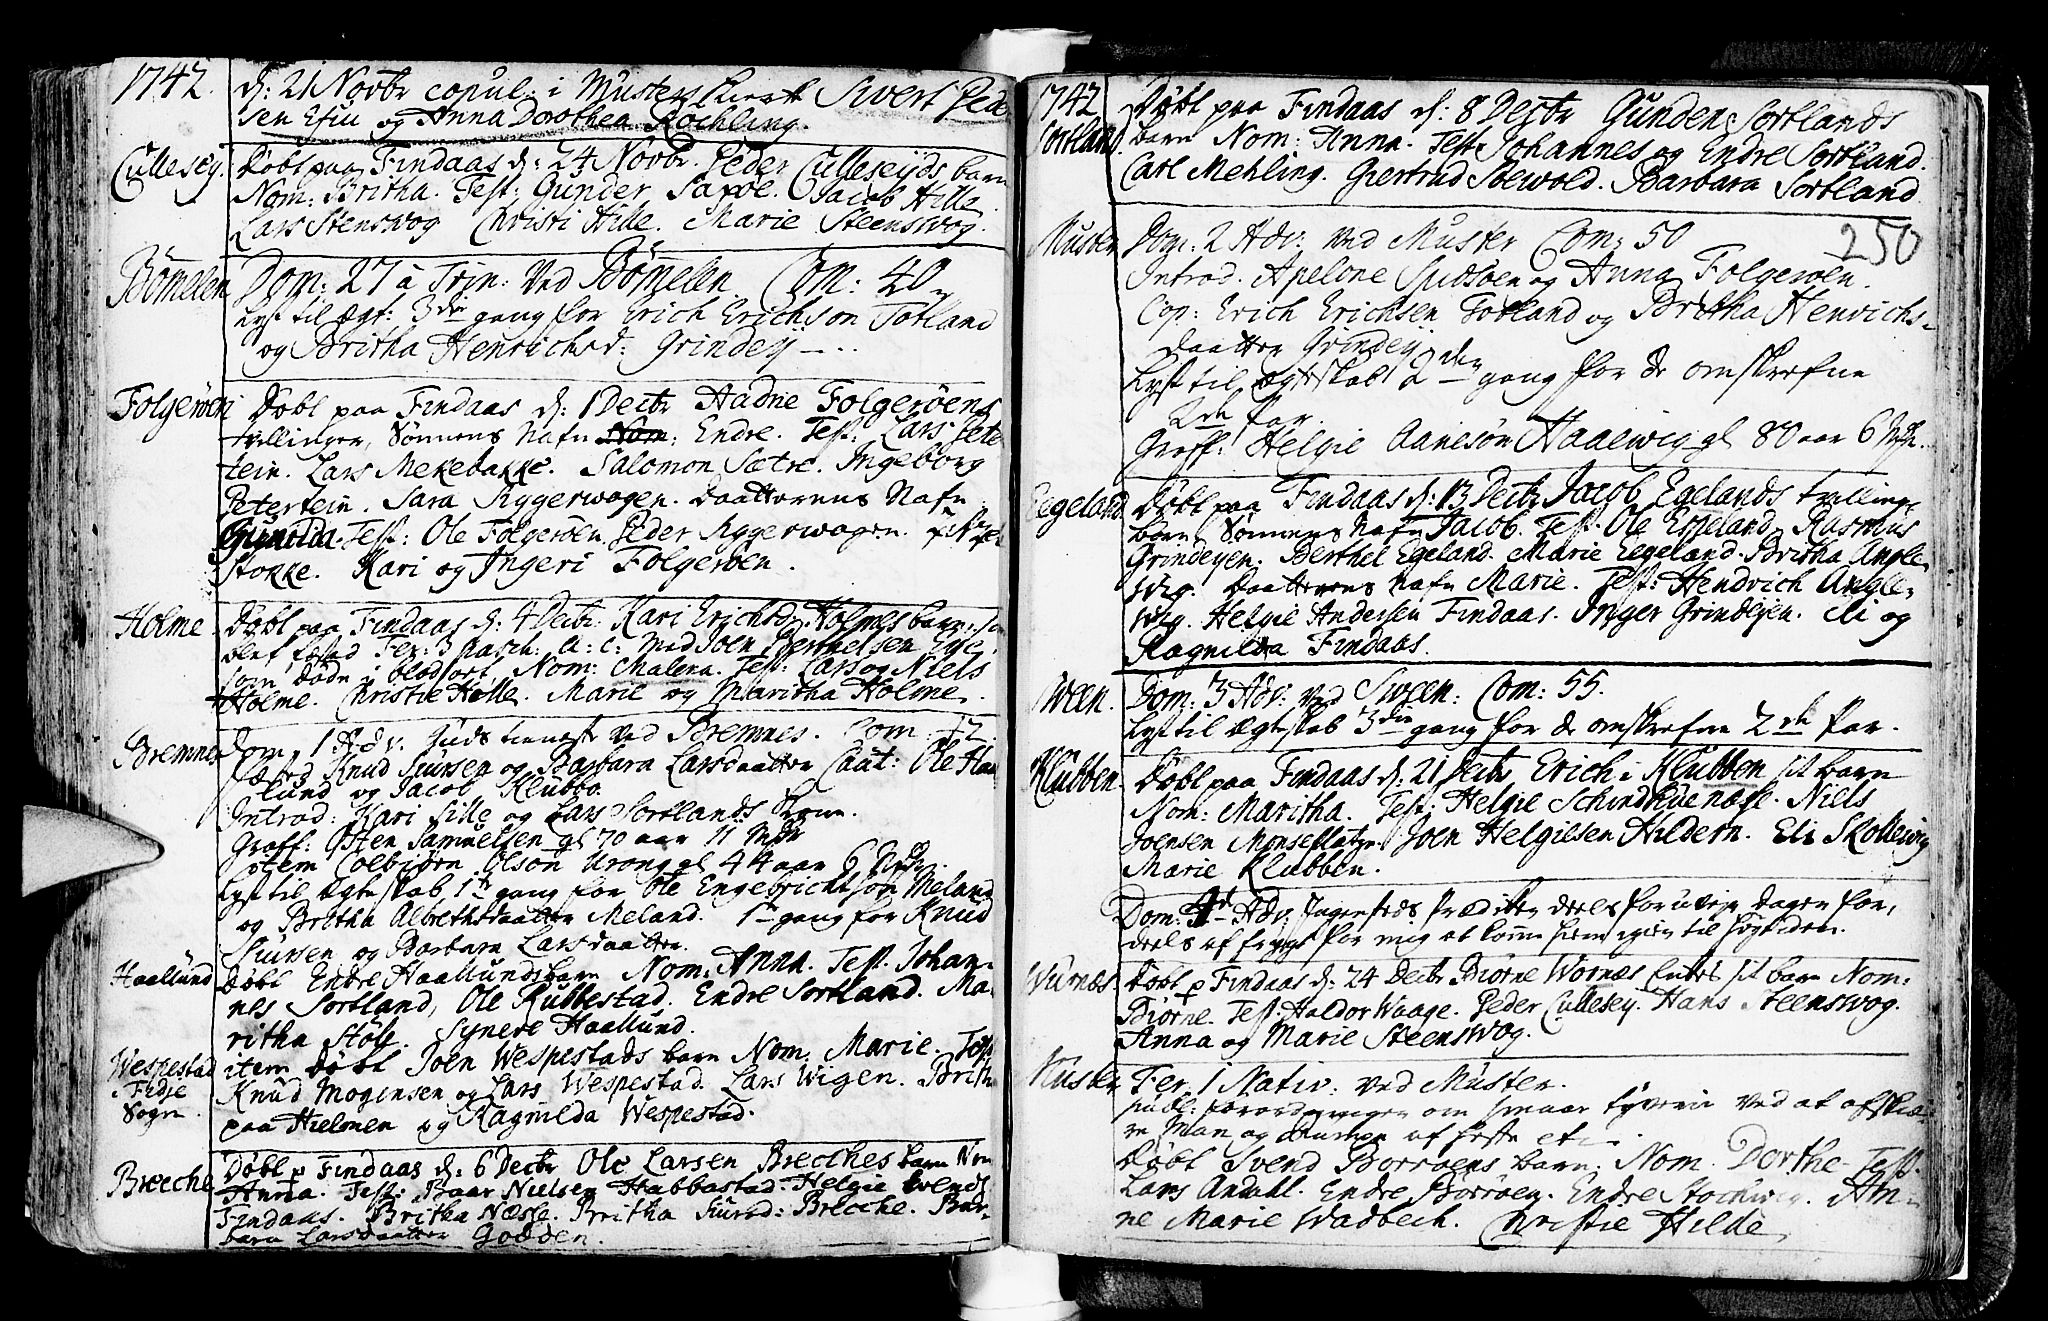 1742. d: 21 Novbr copul: i Musters Kierk Sivert Peder
sen Efiu og Anna Dorothea Röchling.
Culleseÿ. Döbt paa Findaas d: 24 Novbr. Peder Culleseÿds barn
Nom: Britha. Test: Gunder Saxöe. Jacob Hille
Lars Stenswog Christi Hille. Marie Steenswog.
Bömelen Dom: 27 a Trin: Ved Bömelen Com: 40
Lyst til Ægt: 3die gang for Erich Erichson Totland
og Britha Henrichsd: Grindey
Folgeröen Döbt paa Findaas d: 1 Decbr Hadne Folgeröens
tvillinger, Sönnens Nafn Nom: Endre. Test: Lars Peter
tein. Lars Mekebakke. Salomon Sætre. Ingeborg
Petertein. Sara Ryggerwogen. Daatterens Nafn
Gunilda. Test: Ole Folgeröen, Peder Ryggerwogen.
Stokke. Kari og Ingeri Folgeröen.
Holme. Döbt paa Findaas d: 4 Decbr Kari Erichsd: Holmes barn,
blef fæsted Fer: 3 Pasch: a: c: med Joen Berthelsen
som döde i blodsott. Nom: Malena. Test: Lars og Niels
Holme. Christie Hille. Marie og Maritha Holme.
Bremnes Dom. 1 Adv. Guds tieneste ved Bremnes. Com: 12
Fæsted Knud Siursen og Barbara Larsdaatter Caut: Ole Haa
lund og Jacob Klubbo.
Introd: Kari Lille og Lars Sortlands Kone.
Graff: Osten Samuelsen gl 70 aar 11 Mdr
item Colbiörn Olson Urong gl 44 aar 6
Lyst til Ægteskab 1te gang for Ole Engebrichtson Meland
og Britha Albrethsdaatter Meland. 1te gang for Knud
Siursen og Barbara Larsdaatter.
Haallund Döbt Endre Haallunds barn Nom: Anna. Test. Johan-
nes Sortland, Ole Rubbestad. Endre Sortland. Ma-
ritha Stöle. Synere Haallund.
Wespestad item döbt Joen Wespestads barn Nom: Marie. Test
Fedje Knud Mogensen og Lars Wespestad. Lars Wigen. Brith
Sogn. paa Hielmen og Ragnilda Wespestad.
Breche Döbt p Findaas d: 6 Decbr Ole Larsen Breches barn Nom
Anna. Test: Baar Nielsen Habbestad. Helgie Svends
Findaas. Britha Næsse. Britha Siursd: Breche. Bar-
bara Larsdaatter Godöen.
1742 Döbt paa Findaas d: 8 Decbr Gunden Sortlands
Sortland. barn Nom: Anna. Test Johannes og Endre Sortland.
Carl Mehling. Giertrud Soewold. Barbara Sortland
250
Muster Dom: 2 Adv: ved Muster Com: 50
Introd. Apelone Spidsöen og Anna Folgeröen.
Cop: Erich Erichsen Totland og Britha Henrichs-
daatter Grindeij
Lyst til Ægteskab 2den gang for de omskrefne
2de Par.
Graff: Helgie Aanesön Haaewig gl 80 aar 6
Eegeland Döbt paa Findaas d: 13 Decbr Jacob Egelands tvillinge
barn, Sönnens Nafn Jacob. Test. Ole Egeland, Rasmus
Grindeyen. Berthel Egeland. Marie Eegeland. Britha Angle-
wig. Daatterens Nafn Marie. Test: Hendrich Angle-
wig. Helgie Andersen Findaas. Inger Grindeijen. Eli og
Ragnilda Findaas.
Sween. Dom: 3 Adv: ved Sween: Com: 55.
Lyst til Ægteskab 3die gang for de omskrefne 2de Par.
Klubben. Döbt paa Findaas d: 21 Decbr Erich i Klubben sit barn
Nom: Maritha. Test: Helgie Schindhuenæse. Niels
Joensen Monsepladzn. Joen Helgiesen Hildern. Eli Skollewig
Marie Klubben.
Dom: 4d Adv: Ingensteds prædiken deels for uveije dagen for,
deels af frygt for mig at komme hiem igien til Högtiden.
Wurnes. Döbt p Findaas d: 24 Decbr Biörne Wornes sit barn Nom:
Biörne. Test. Haldor Waage. Peder Cullesey. Hans Steenswog.
Anna og Marie Steenswog.
Muster Fer: 1 Nativ: ved Muster.
publ: forordningen om smaae tyverie ved at afskiæ-
re Man og Rumpe af heste etc.
Döbt Svend Borröens barn. Nom. Dorthe. Test.
Lars Andahl. Endre Börröen. Endre Stochwig. An-
ne Marie Wadbech. Christie Hilde.